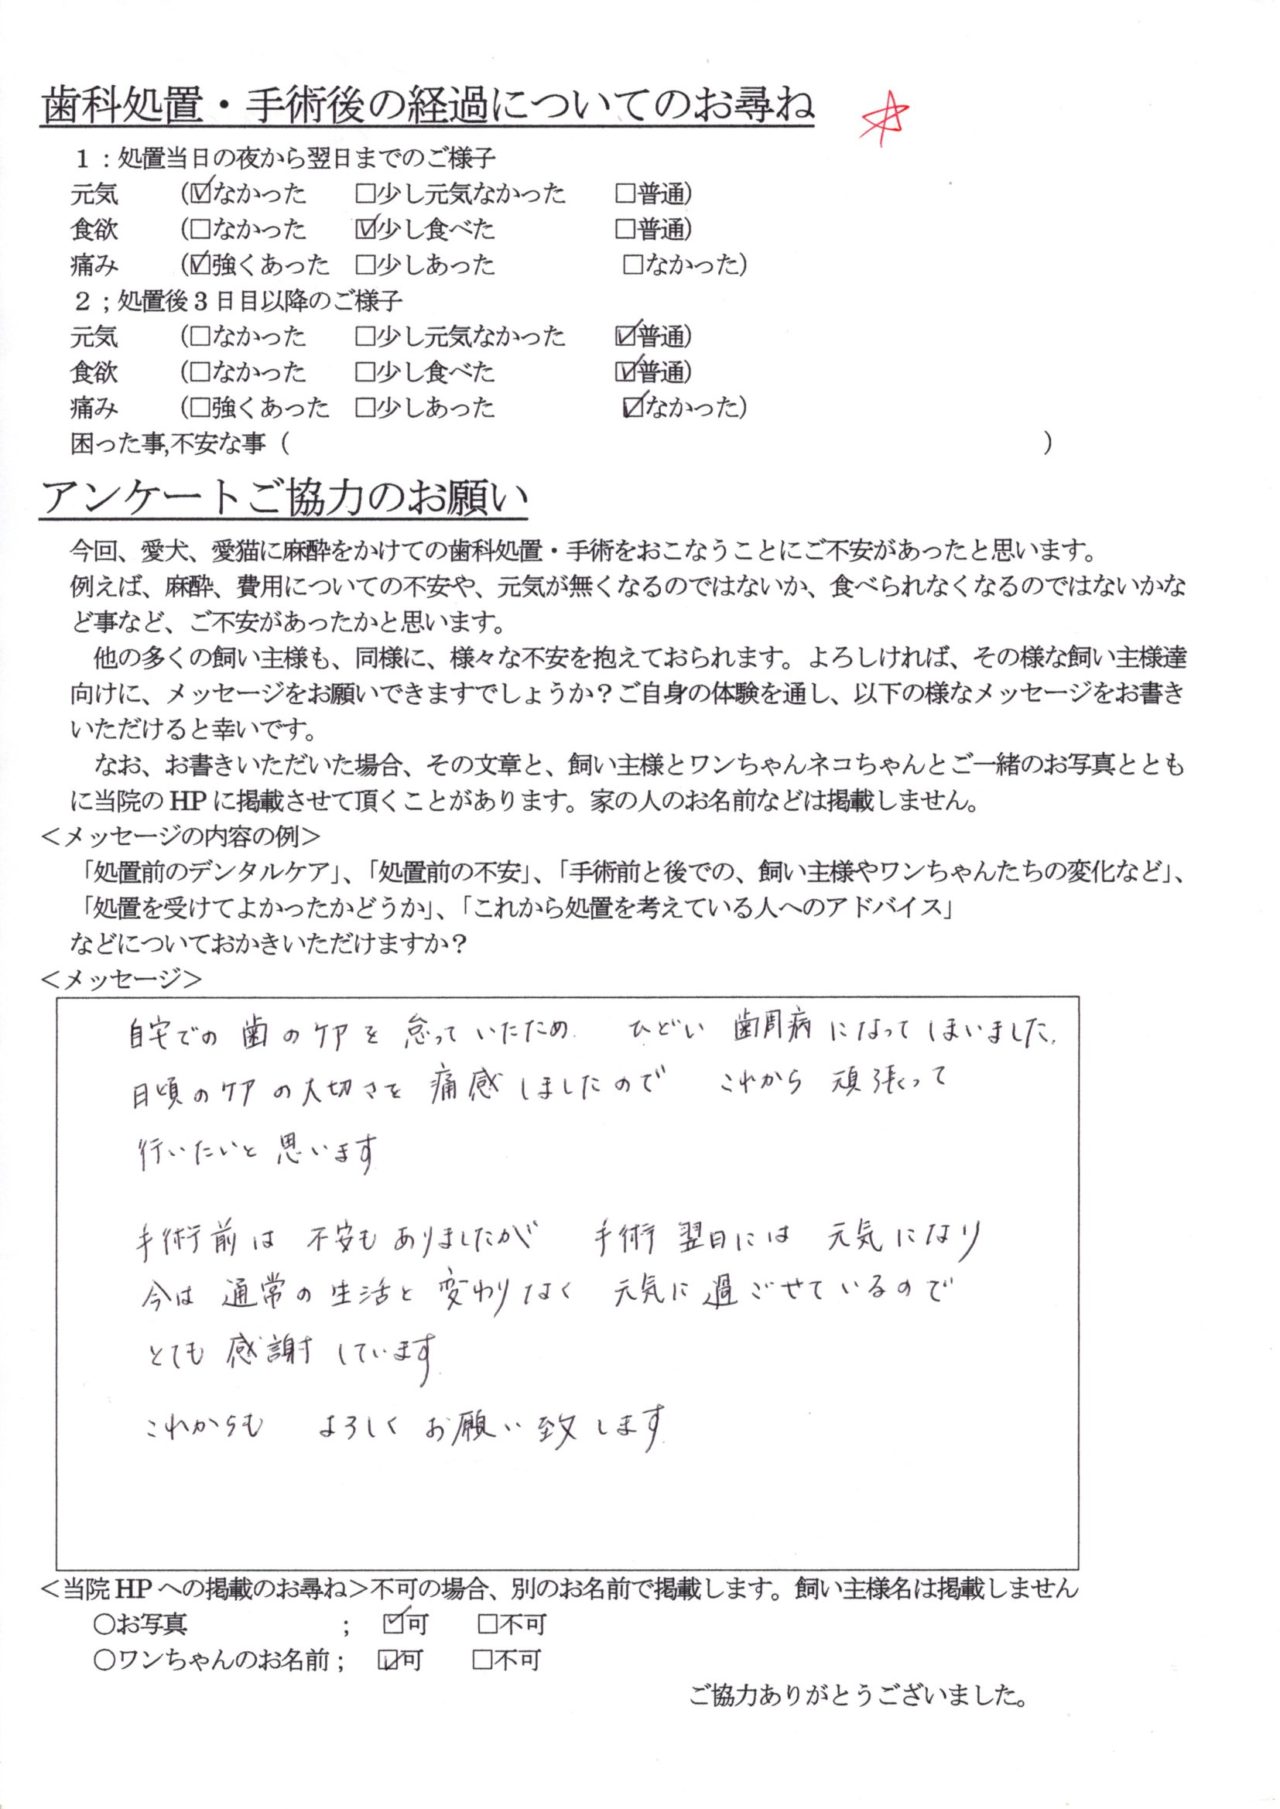 歯科処置・手術後の経過についてのお尋ね
1:処置当日の夜から翌日までのご様子
元気 (☑なかった □少し元気なかった □普通)
食欲 (□なかった ☑少し食べた □普通)
痛み (☑強くあった □少しあった □なかった)
2;処置後3日目以降のご様子
元気 (□なかった □少し元気なかった ☑普通)
食欲 (□なかった □少し食べた ☑普通)
痛み (□強くあった □少しあった ☑なかった)
困った事,不安な事( )
アンケートご協力のお願い
今回、愛犬、愛猫に麻酔をかけての歯科処置・手術をおこなうことにご不安があったと思います。
例えば、麻酔、費用についての不安や、元気が無くなるのではないか、食べられなくなるのではないかな
ど事など、ご不安があったかと思います。
他の多くの飼い主様も、同様に、様々な不安を抱えておられます。よろしければ、その様な飼い主様達
向けに、メッセージをお願いできますでしょうか?ご自身の体験を通し、以下の様なメッセージをお書き
いただけると幸いです。
なお、お書きいただいた場合、その文章と、飼い主様とワンちゃんネコちゃんとご一緒のお写真ととも
に当院のHPに掲載させて頂くことがあります。家の人のお名前などは掲載しません。
<メッセージの内容の例>
「処置前のデンタルケア」、「処置前の不安」、「手術前と後での、飼い主様やワンちゃんたちの変化など」、
「処置を受けてよかったかどうか」、「これから処置を考えている人へのアドバイス」
などについておかきいただけますか?
<メッセージ>
自宅での歯のケアを怠っていたため ひどい歯周病になってしまいました.
日頃のケアの大切さを痛感しましたので これから頑張って
行いたいと思います
手術前は不安もありましたが 手術翌日には元気になり
今は通常の生活と変わりなく 元気に過ごせているので
とても感謝しています
これからも よろしくお願い致します
<当院HPへの掲載のお尋ね>不可の場合、別のお名前で掲載します。飼い主様名は掲載しません
○お写真 ; ☑可 □不可
○ワンちゃんのお名前; ☑可 □不可
ご協力ありがとうございました。